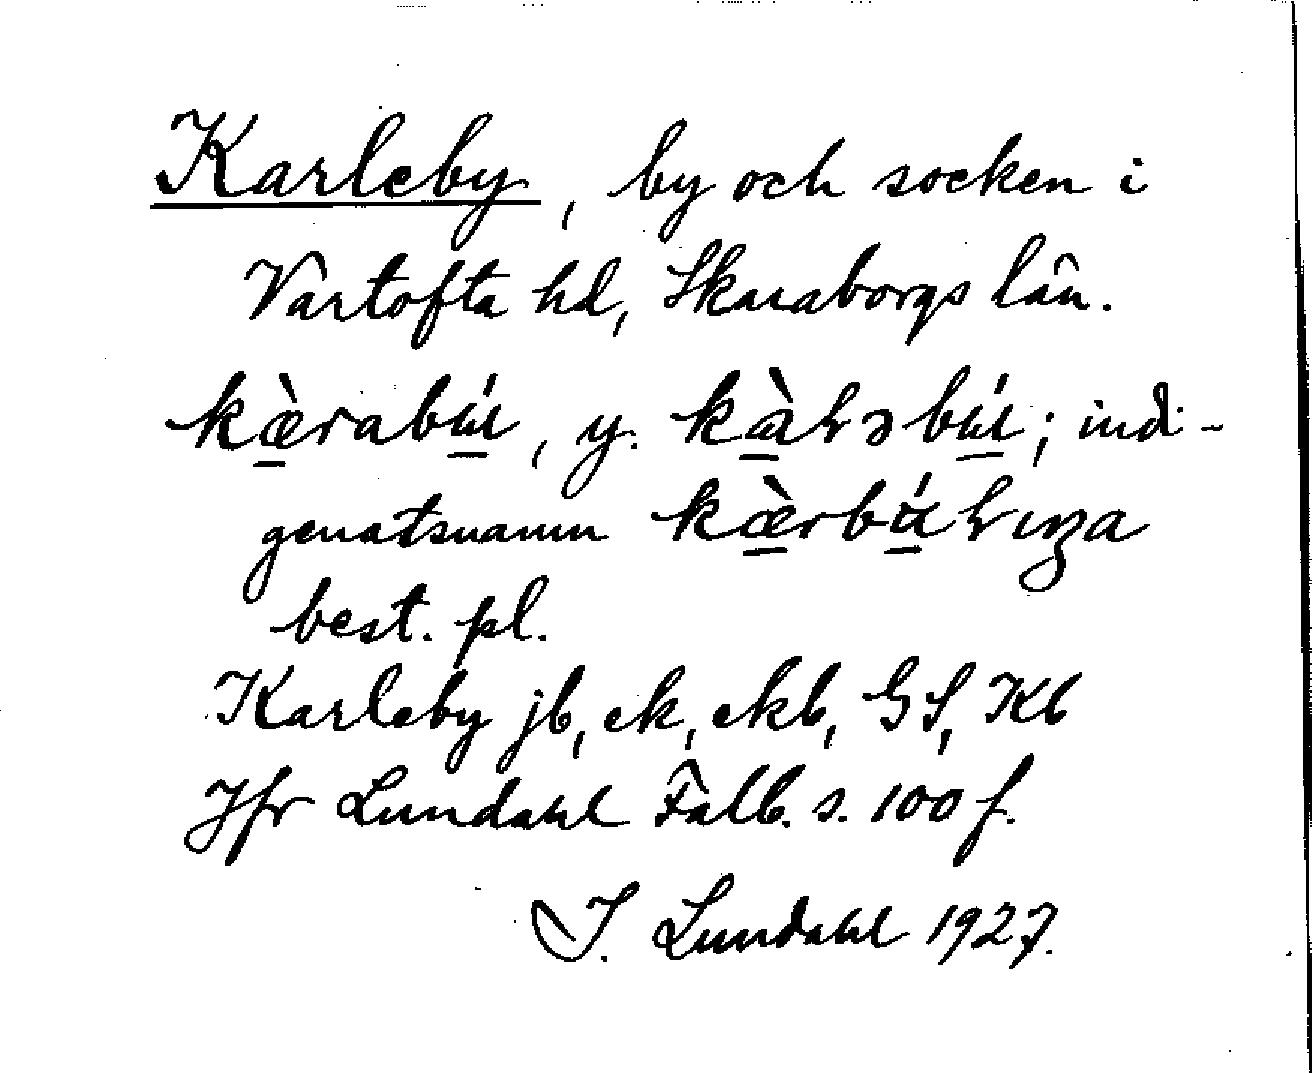 Karleby, by och socken i
Vartofta hd, Skaraborgs län.
kæ̀rabɯ́, y. kɑ̀ꞎəbɯ́; indi-
genatsnamn
best. pl.
Karleby jb, ek, ekb, GS, Kb
Jfr Lundahl Falb. s. 100 f.
I. Lundahl 1927.